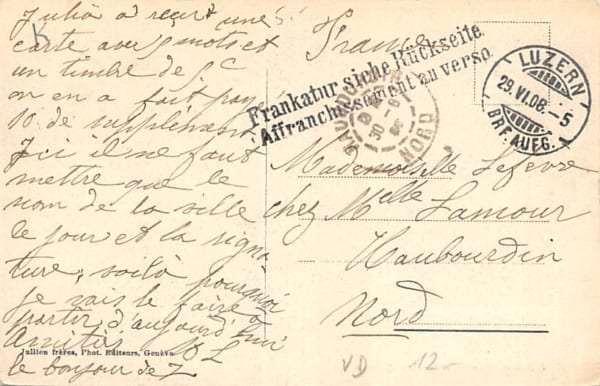 Julia a reçu une
carte avec 9 mots et
un timbre de 5 c
on en a fait pay
10 de supplément
Ici il ne faut
mettre que le
nom de la ville
le jour et la signa
ture, voilà pourquoi
je vais le faire à
partir d'aujourd'hui
Amitiés
le bonjour de
Jullien frères, Phot. Editeurs, Genève
France
Frankatur siehe Rückseite
Affranchissement au verso.
LUZERN
29.VI.08.-5
BRF.AUFG.
NORD
Mademoiselle Lefevre
chez Melle Lamour
Haubourdin
Nord
VD 12-